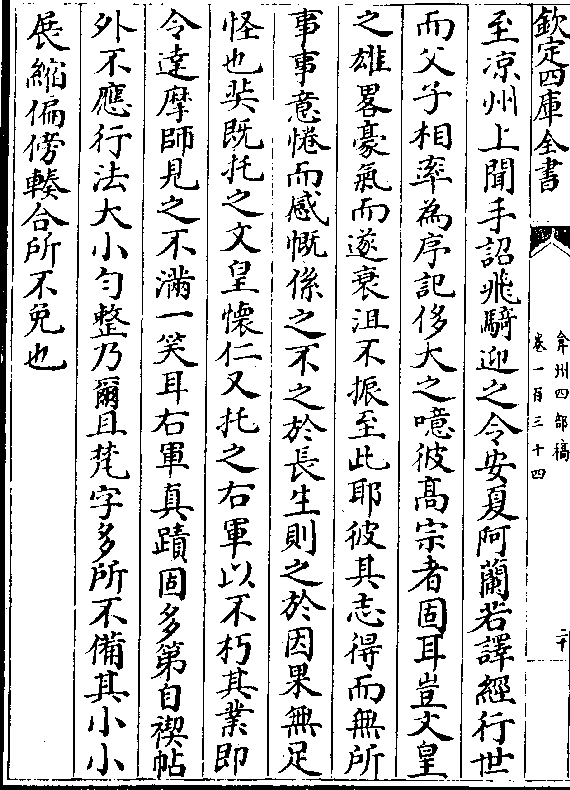 欽定四庫全書
弇州四部稿
卷一百三十四
二十
至凉州上聞手詔飛騎迎之令安夏阿蘭若譯經行世
而父子相率為序記侈大之噫彼高宗者固耳豈文皇
之雄畧豪氣而遂衰沮不振至此耶彼其志得而無所
事事意惓而感慨係之不之於長生則之於因果無足
怪也奘既托之文皇懷仁又托之右軍以不朽其業即
令達摩師見之不滿一笑耳右軍真蹟固多第自禊帖
外不應行法大小勻整乃爾且梵字多所不備其小小
展縮偏傍輳合所不免也